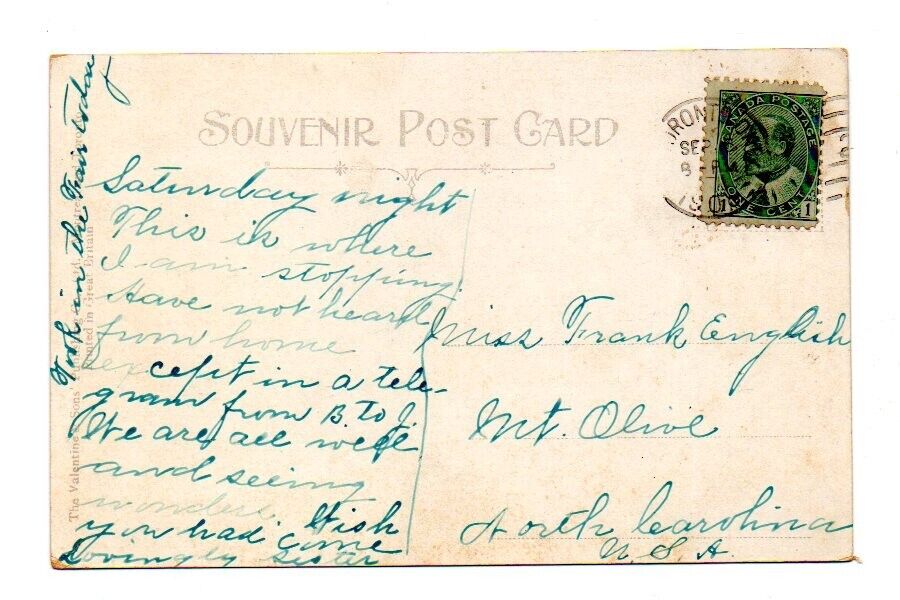 SOUVENIR POST CARD
Saturday night
This is where
I am stopping.
Have not heard
from home
except in a tele-
gram from B to J.
We are all well
and seeing
wonders. Wish
you had come
Lovingly Sister
Took in the Fair today
The Valentine & Sons'
Printed in Great Britain
CANADA POSTAGE
ONE CENT
1
SEP
8
Miss Frank English
Mt. Olive
North Carolina
U.S.A.